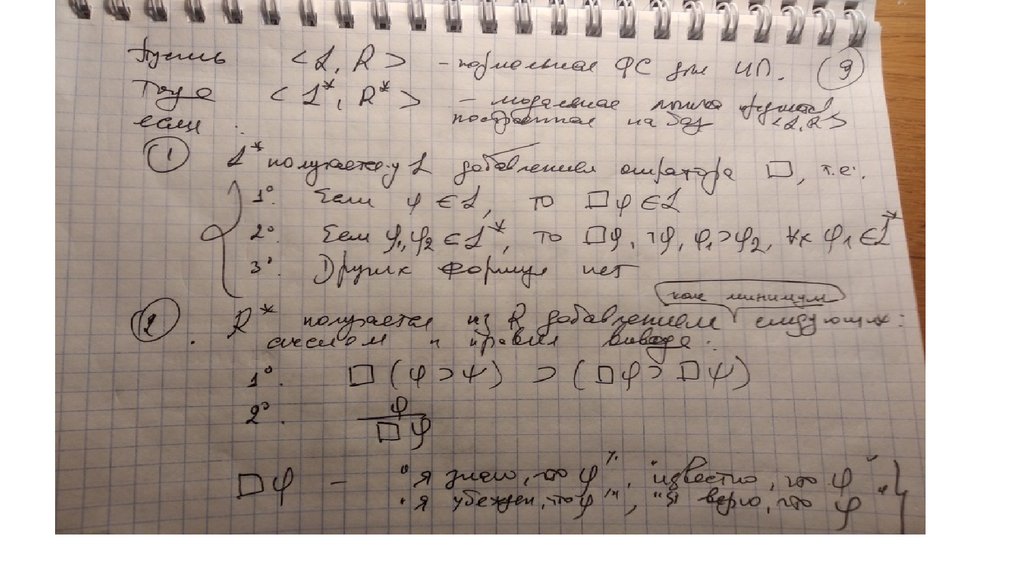 Пусть <L, R> – нормальная ФС для ИП. 9
Тогда <L*, R*> – модальная логика
если : построенная на базе <L, R>
① L* получается из L добавлением оператора □, т.е.
1°. Если φ ∈ L, то □φ ∈ L
2°. Если φ₁, φ₂ ∈ L*, то □φ, ¬φ, φ₁ ⊃ φ₂, ∀x φ₁ ∈ L*
3°. Других формул нет
как минимум
②. R* получается из R добавлением следующих:
аксиом и правил вывода:
1°. □(φ ⊃ ψ) ⊃ (□φ ⊃ □ψ)
2°. φ
□φ
□φ – "я знаю, что φ", "известно, что φ",
"я убежден, что φ", "я верю, что φ